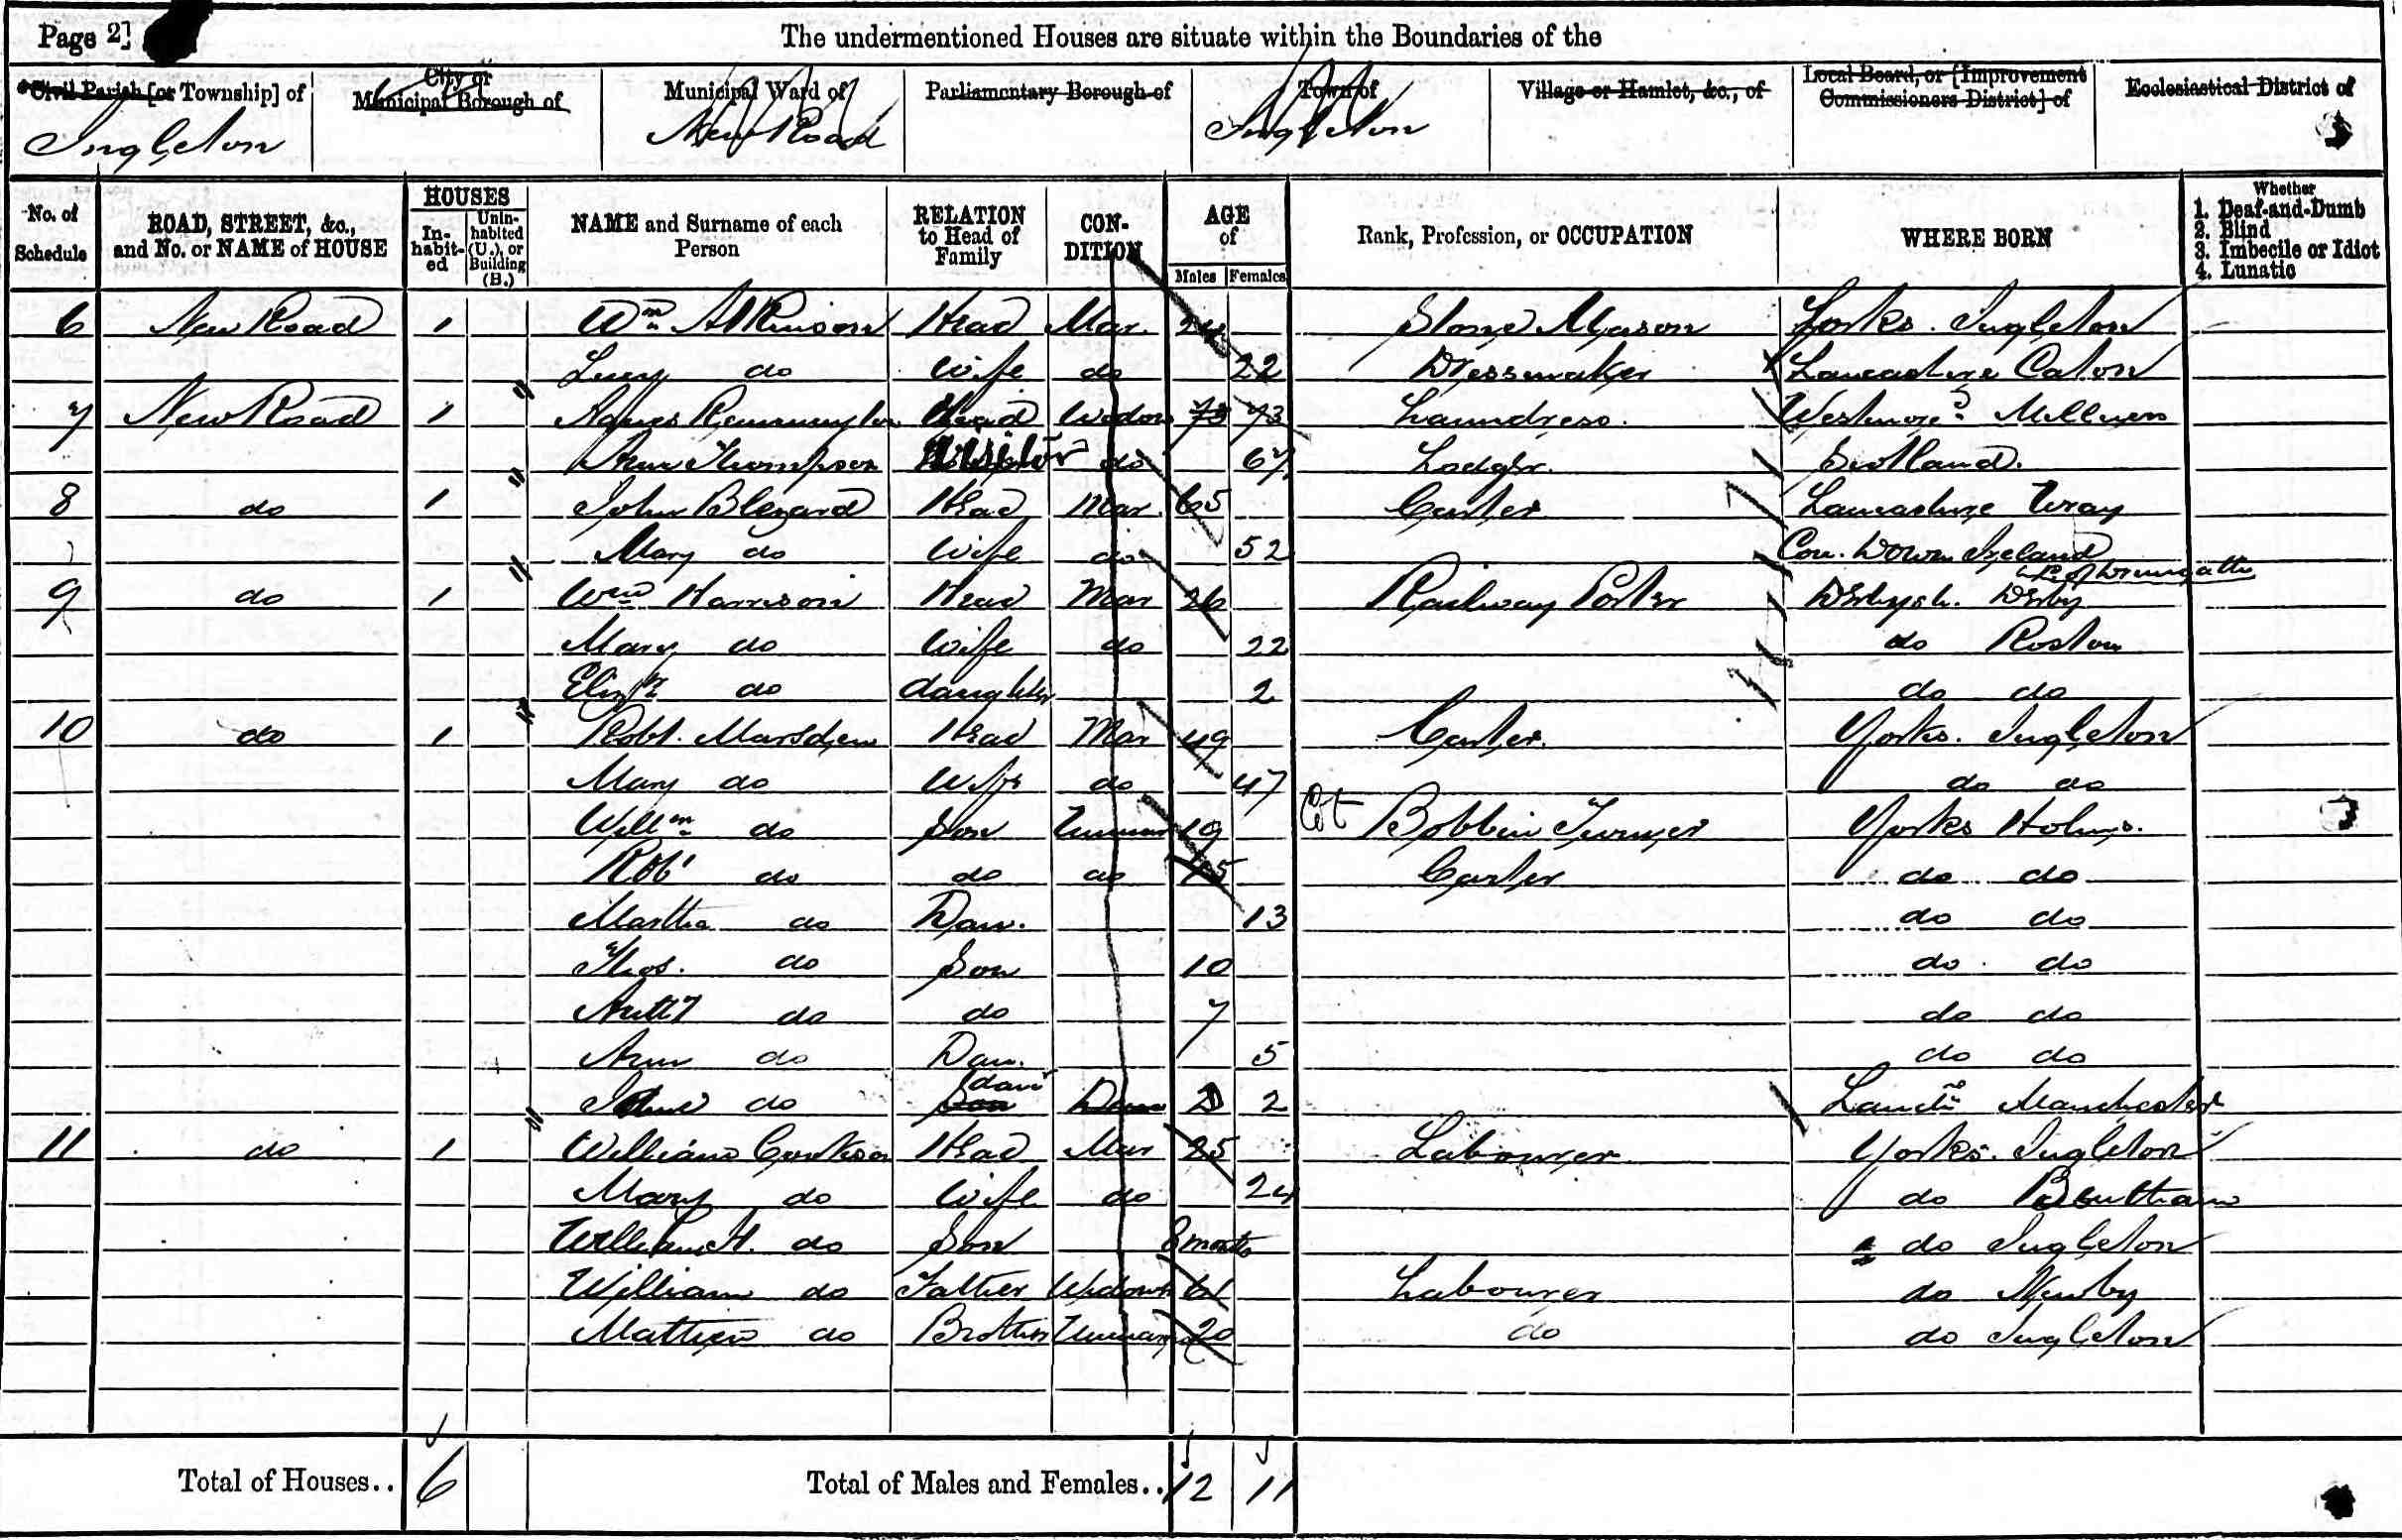 Page 2]
The undermentioned Houses are situate within the Boundaries of the
Civil Parish [or Township] of
City or Municipal Borough of
Municipal Ward of
Parliamentary Borough of
Town of
Village or Hamlet, &c., of
Local Board, or [Improvement Commissioners District] of
Ecclesiastical District of
Ingleton New Road Ingleton
No. of Schedule
ROAD, STREET, &c., and No. or NAME of HOUSE
HOUSES
In-habit-ed
Unin-habited (U.), or Building (B.)
NAME and Surname of each Person
RELATION to Head of Family
CON-DITION
AGE of
Males Females
Rank, Profession, or OCCUPATION
WHERE BORN
Whether
1. Deaf-and-Dumb
2. Blind
3. Imbecile or Idiot
4. Lunatic
6 New Road 1 Wm Atkinson Head Mar. 24 Stone Mason Yorks. Ingleton
Lucy do Wife do 22 Dressmaker Lancashire Caton
7 New Road 1 Agnes Remmington Head Widow 73 73 Laundress. Westmored
Ann Thompson Visitor do 67 Lodger. Scotland.
8 do 1 John Blezard Head Mar. 65 Carter Lancashire Wray
Mary do Wife do 52 Cou. Down Ireland
9 do 1 Wm Harrison Head Mar 26 Railway Porter Derbysh. Derby
Mary do Wife do 22 do Roston
Elizth do daughter 2 do do
10 do 1 Robt. Marsden Head Mar 49 Carter. Yorks. Ingleton
Mary do Wife do 47 do do
Willm do Son Unmar 19 Cot Bobbin Turner Yorks Holme.
Robt do do do 15 Carter do do
Martha do Dau. 13 do do
Thos. do Son 10 do do
do do 7 do do
Ann do Dau. 5 do do
Jane do Son dau 2 2 Manchester
11 do 1 William Cookson Head Mar 25 Labourer Yorks. Ingleton
Mary do Wife do 24 do Bentham
William H. do Son 8 months do Ingleton
William do Father Widowr 61 Labourer do Newby
Mathew do Brother Unmar 20 do do Ingleton
Total of Houses.. 6 Total of Males and Females.. 12 11